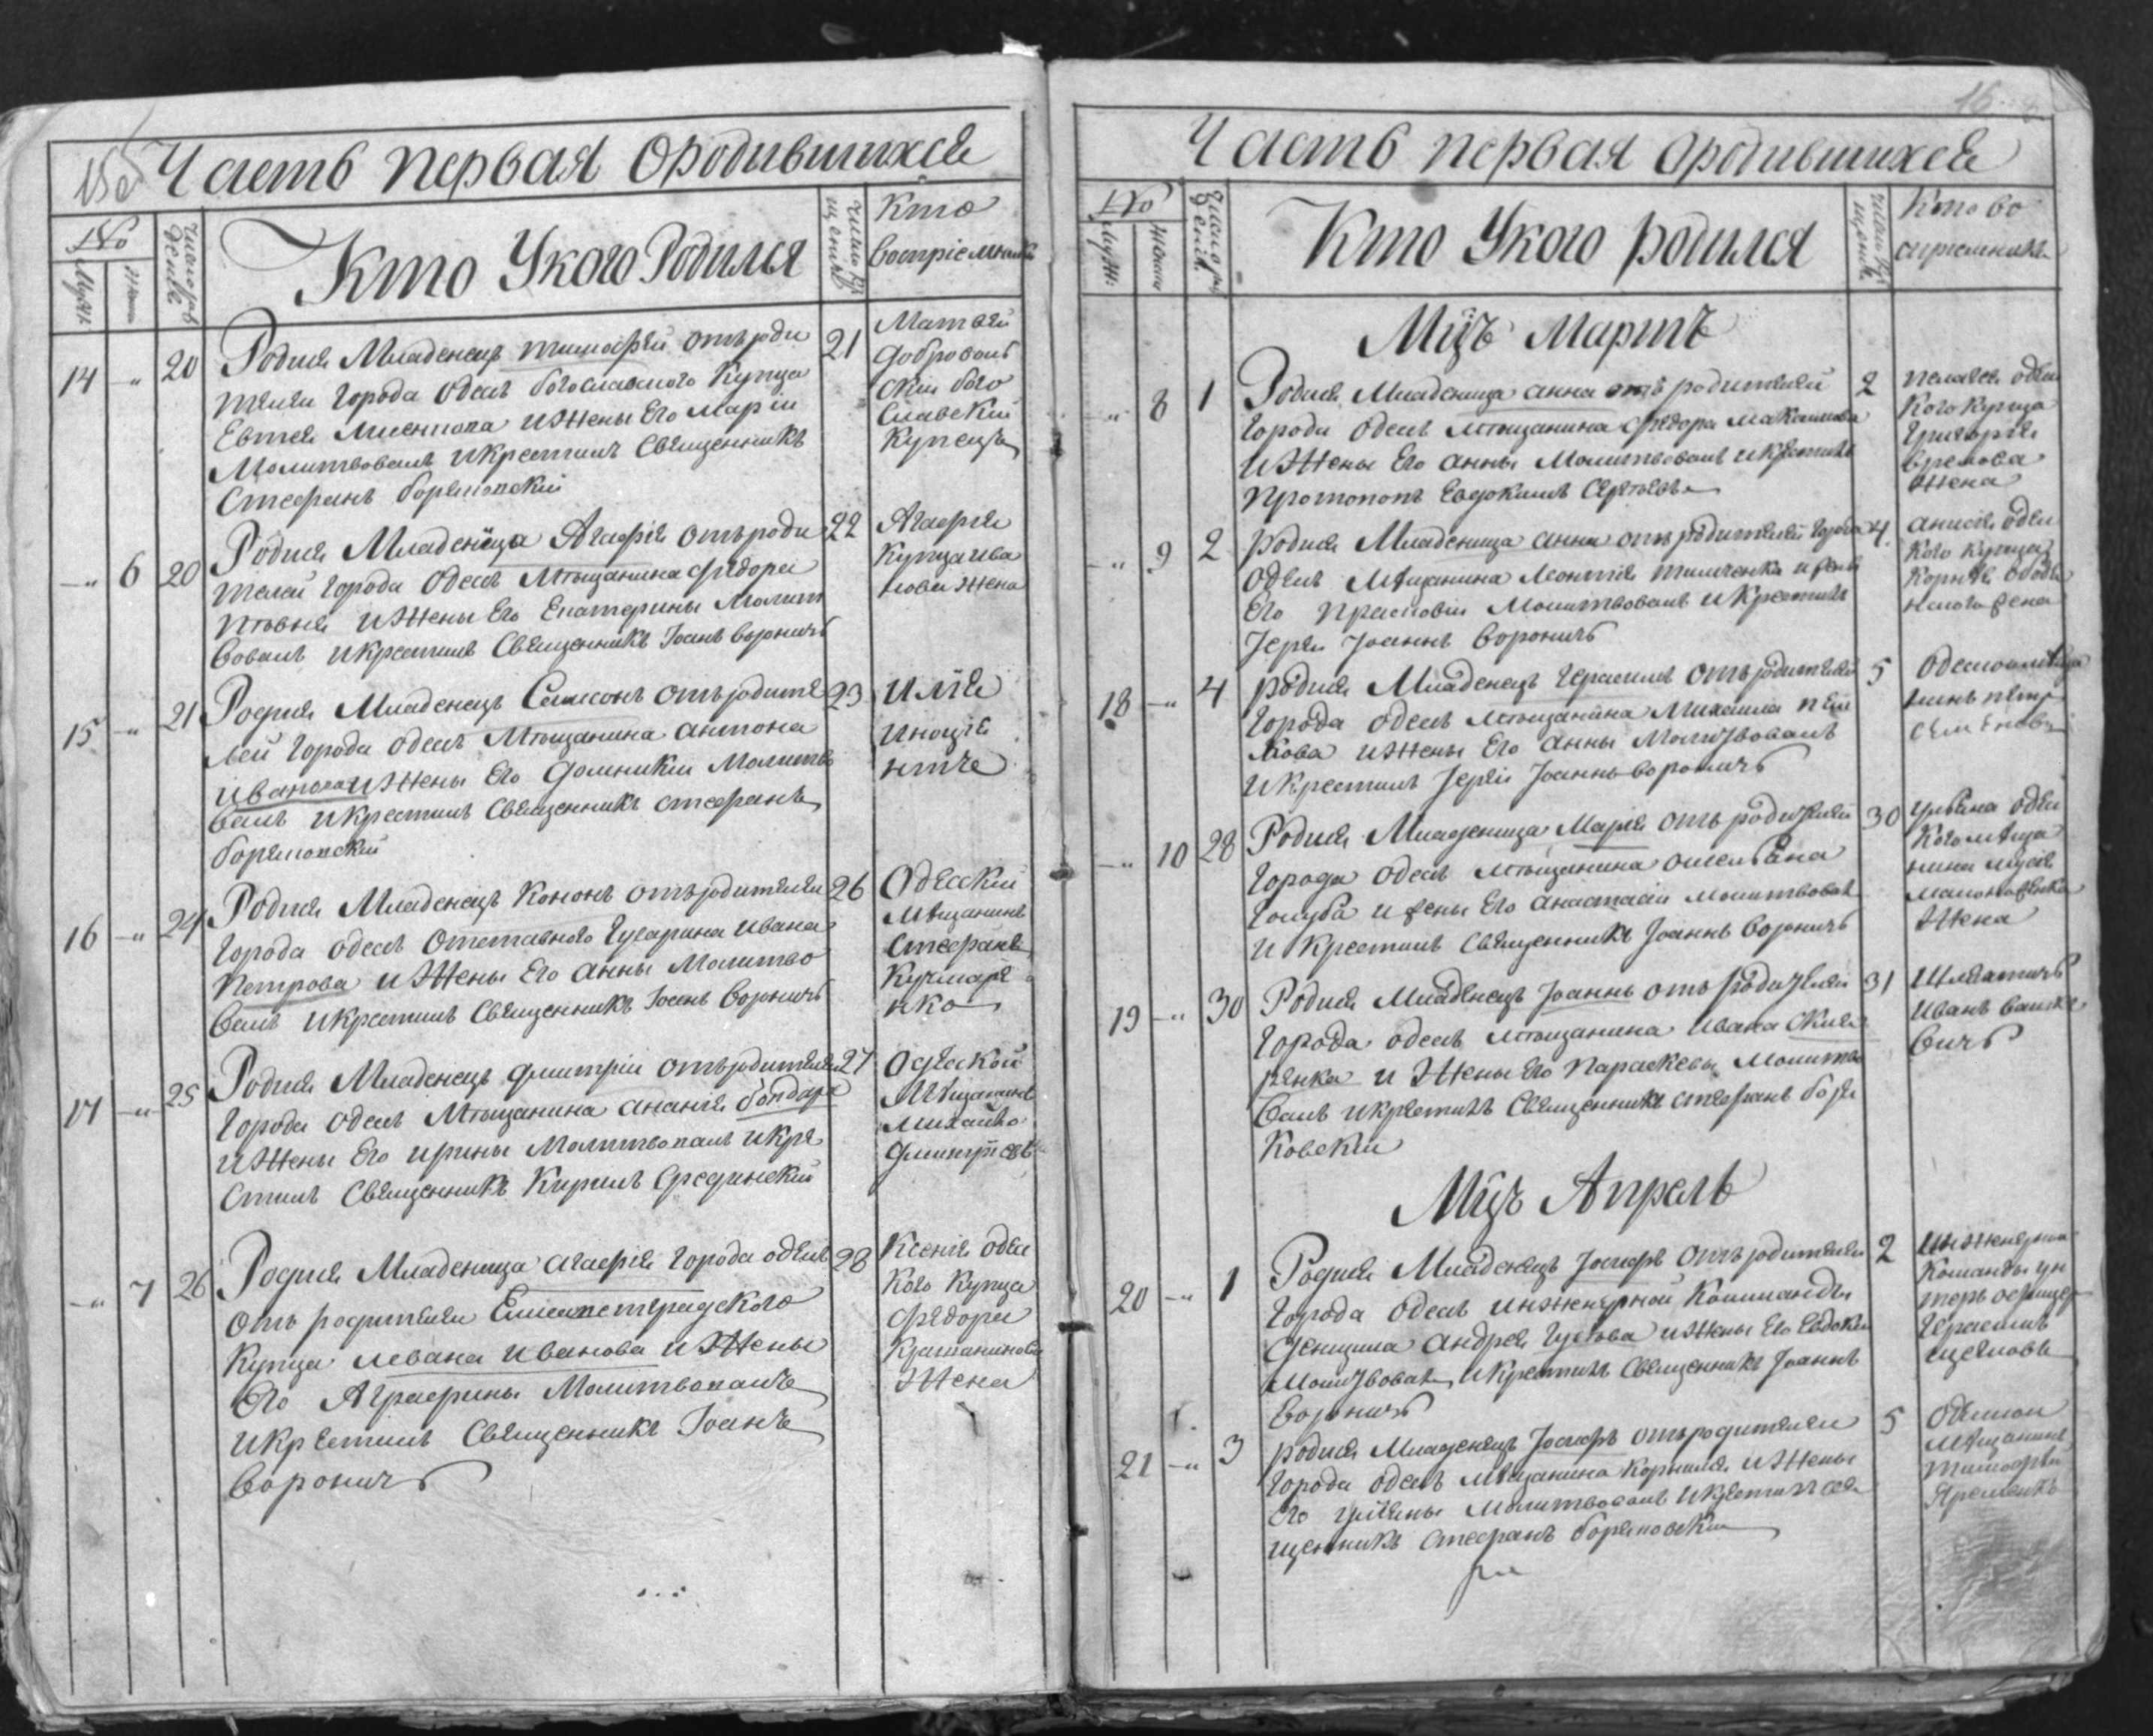 Часть первая ородившихся
№
Мужск
Женск
Число рож
дения
Кто Укого Родился
число кр
щения
Кто
воспріемник
14 -„ 20 Родися Младенецъ тимофей отъ роди 21
телей города Одесы богославского Купца
Евтея Лисенкова и Жены Его Маріи
Молитвовалъ и Крестилъ Священникъ
Стефанъ
Матвей
Доброволь
скій бого
славскій
Купецъ
-„ 6 20 Родися Младеница Агафія отъ роди 22
телей города Одесы Мѣщанина Федора
и Жены Его Екатерины Молит
вовалъ и Крестилъ Священникъ Іоанъ Вороничъ
Агафія
Купца Ива
нова жена
15 -„ 21 Родися Младенецъ Самсонъ отъ родите 23
лей города Одесы Мѣщанина антона
Иванова и Жены Его Домникіи Молитво
валъ и Крестилъ Священникъ стефанъ
Илія
16 -„ 24 Родися Младенецъ Кононъ отъ родителей 26
города Одесы Отставного Гусарина Ивана
Петрова и Жены Его Анны Молитво
валъ и Крестилъ Священникъ Іоанъ Вороничъ
Одескій
Мѣщанинъ
Стефанъ
Кучмаре
нко
17 -„ 25 Родися Младенецъ Дмитрій отъ родителей 27
города Одесы Мѣщанина ананія бондаря
и Жены Его ирины Молитвовалъ и Кре
стилъ Священникъ Кирилъ Срединскій
Одеской
Мѣщанинъ
Михайло
Дмитріевъ
-„ 7 26 Родися Младеница агафія города одесы 28
отъ родителей Елисаветградского
Купца левана Иванова и Жены
Его Аграфины Молитвовалъ
и Крестилъ Священникъ Іоанъ
Вороничъ
Ксенія одес
кого Купца
Федора
Жена
16
Часть первая ородившихся
№
Муж:
Женск
Число ро
ж денія
Кто Укого родился
число кр
щенія
Кто во
спріемникъ
Мцъ Мартъ
-„ 8 1 Родися Младеница анна отъ родителей 2
города одесы мѣщанина Федора Максимова
и Жены Его анны Молитвовалъ и Крестилъ
протопопъ Евдокимъ Сергѣевъ
пелагея одес
кого купца
Григорія
жена
-„ 9 2 родися Младеница анна отъ родителей города 4
одесы Мѣщанина Леонтія тимченка и жены
Его прасковіи Молитвовалъ и Крестилъ
Іерей Іоаннъ Вороничъ
анисія одес
кого купца
Корнея
жена
18 -„ 4 родися Младенецъ Герасимъ отъ родителей 5
города одесы мѣщанина Михаила
кова и Жены Его анны Молитвовалъ
и Крестилъ Іерей Іоаннъ Вороничъ
нинъ петръ
Семеновъ
-„ 10 28 Родися Младеница Марія отъ родителей 30
города одесы мѣщанина омельяна
Голуба и жены Его анастасіи молитвовалъ
и Крестилъ Священникъ Іоаннъ Вороничъ
ульяна одес
кого мѣща
нина
Жена
19 -„ 30 Родися Младенецъ Іоаннъ отъ родителей 31
города одесы мѣщанина Ивана
ренка и Жены Его параскевы Молитво
валъ и крестилъ Священникъ стефанъ боре
ковскій
Шляхтичъ
Иванъ
вичъ
Мцъ Апрель
20 -„ 1 Родися Младенецъ Іосифъ отъ родителей 2
города одесы инженерной Комманды
Денщика андрея Гусева и Жены Его Евдокіи
Молитвовалъ и Крестилъ Священникъ Іоаннъ
Вороничъ
инженерной
Команды ун
теръ офицеръ
Герасимъ
21 -„ 3 родися Младенецъ Іосифъ отъ родителей 5
города одесы мѣщанина Корнилія и Жены
Его ульяны Молитвовалъ и Крестилъ свя
щенникъ стефанъ
Одескои
мѣщанинъ
тимофей